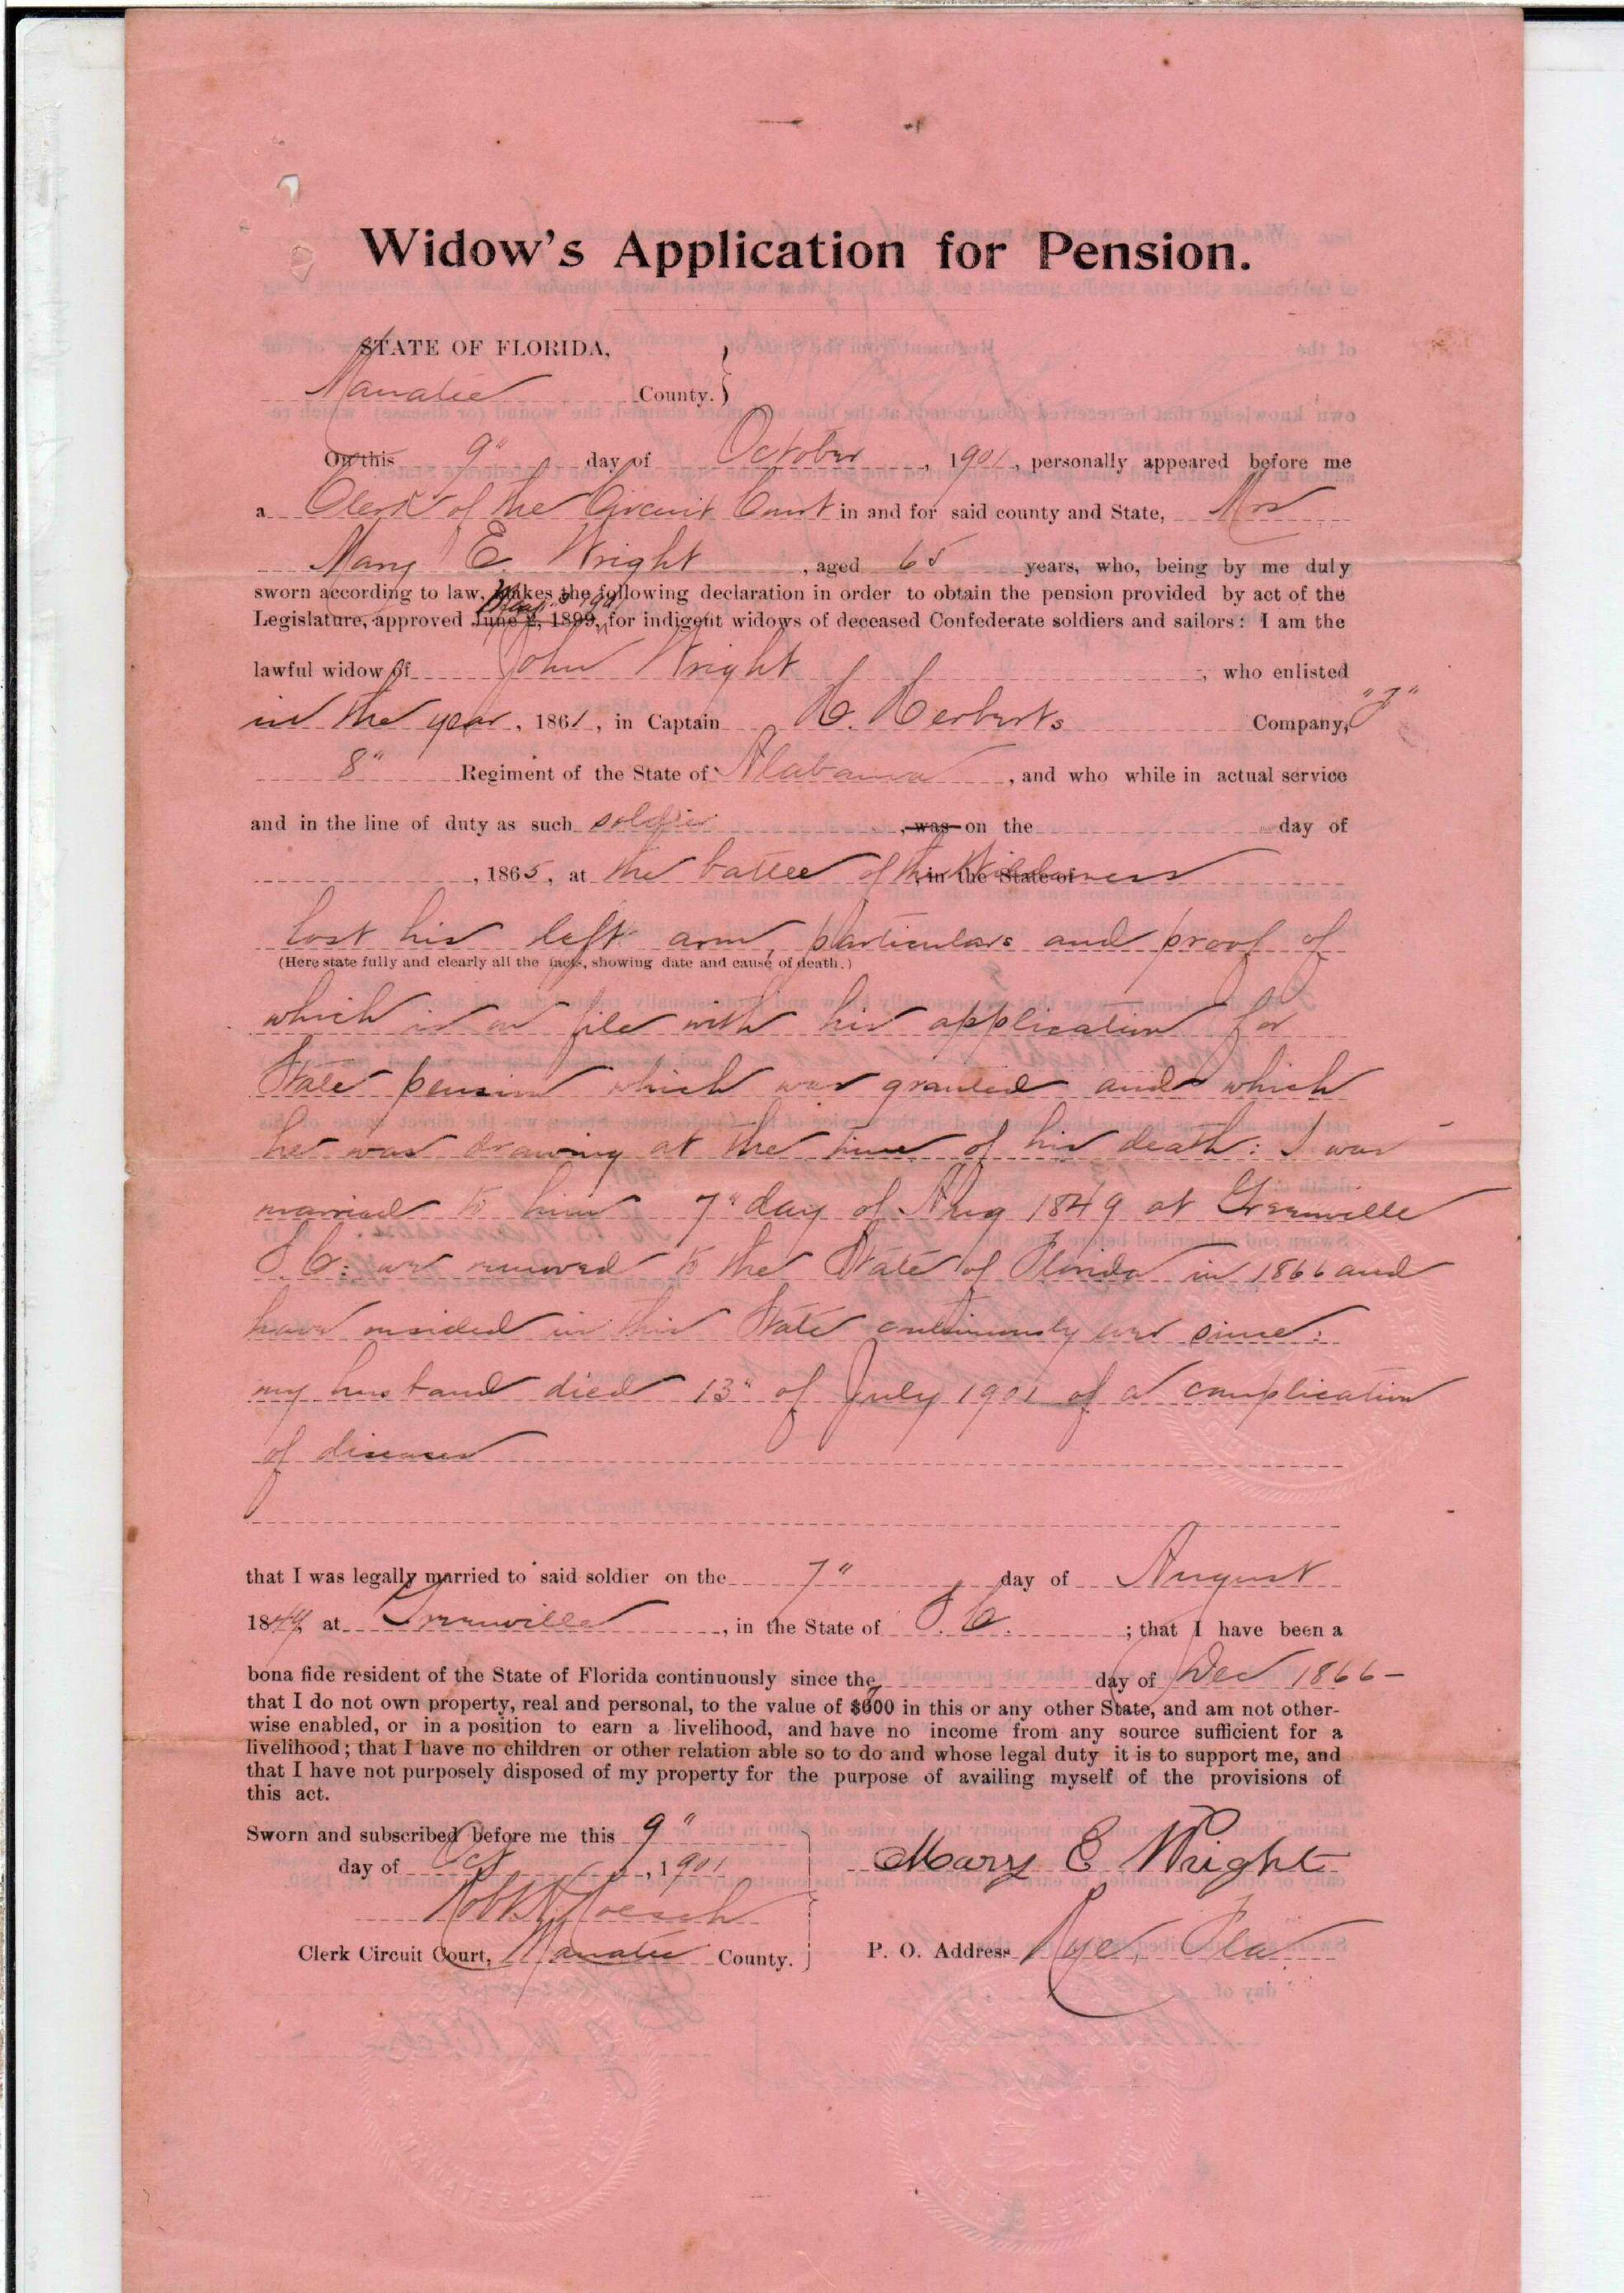 Widow's Application for Pension.
STATE OF FLORIDA,
Manatee County. }
On this 9" day of October, 1901, personally appeared before me
a Clerk of the Circuit Court in and for said county and State, Mrs
Mary E. Wright, aged 65 years, who, being by me duly
sworn according to law, makes the following declaration in order to obtain the pension provided by act of the
Legislature, approved June 2, 1899, for indigent widows of deceased Confederate soldiers and sailors: I am the
lawful widow of John Wright, who enlisted
in the year, 1861, in Captain H. Herberts Company,
8" Regiment of the State of Alabama, and who while in actual service
and in the line of duty as such soldier, was on the day of
, 1865, at the battle of the Wilderness, in the State of
lost his left arm, particulars and proof of
(Here state fully and clearly all the facts, showing date and cause of death.)
which is on file with his application for
State pension which was granted and which
he was drawing at the time of his death: I was
married to him 7" day of Aug 1849 at Greenville
S.C: we removed to the State of Florida in 1866 and
have resided in this State continuously ever since:
my husband died 13" of July 1901 of a complication
of diseases
that I was legally married to said soldier on the 7" day of August
1849 at Greenville, in the State of S.C.; that I have been a
bona fide resident of the State of Florida continuously since the day of Dec 1866-
that I do not own property, real and personal, to the value of $600 in this or any other State, and am not other-
wise enabled, or in a position to earn a livelihood, and have no income from any source sufficient for a
livelihood; that I have no children or other relation able so to do and whose legal duty it is to support me, and
that I have not purposely disposed of my property for the purpose of availing myself of the provisions of
this act.
Sworn and subscribed before me this 9"
day of Oct, 1901
Mary E Wright
Robt H Roesch
Clerk Circuit Court, Manatee County.
P. O. Address Rye, Fla